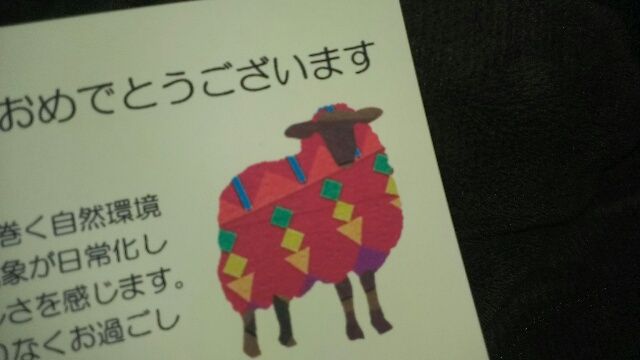 おめでとうございます
巻く自然環境
象が日常化し
さを感じます。
なくお過ごし